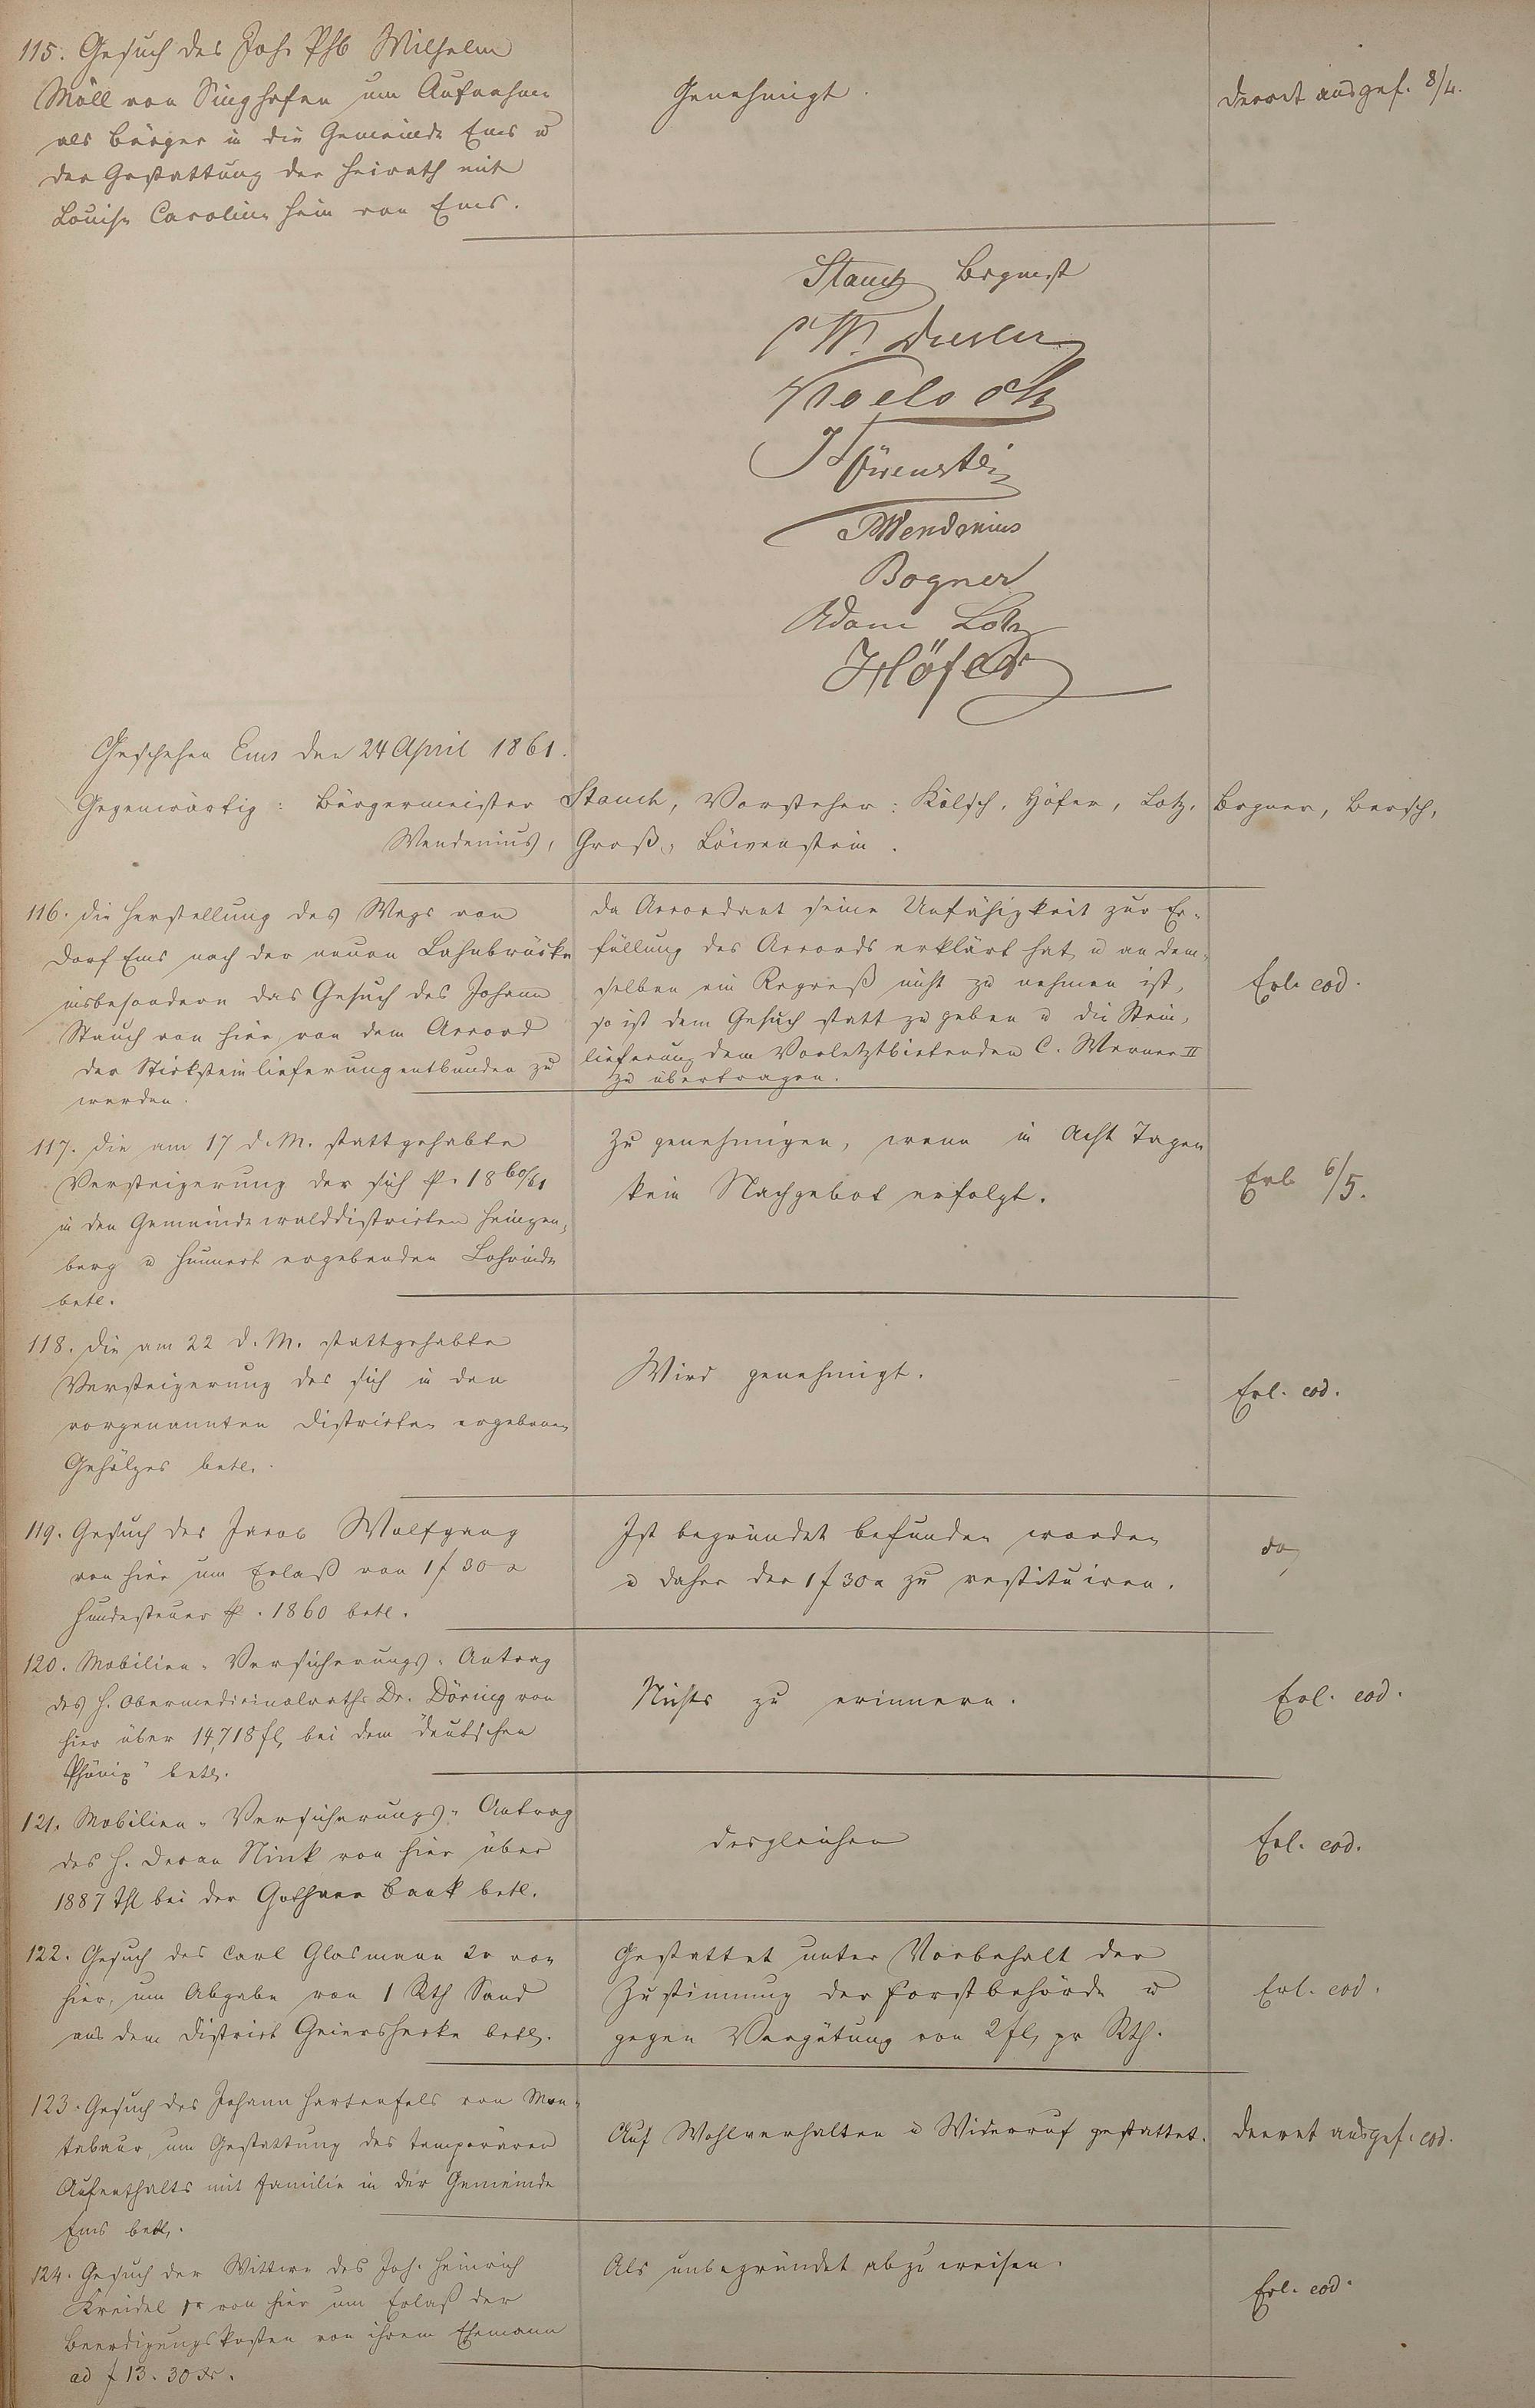 115. Gesuch des Joh. Phb Wilhelm
Möll von Singhofen um Aufnahme
als Bürger in die Gemeinde Ems u
der Gestattung der Heirath mit
Louise Caroline Hein von Ems.
Genehmigt.
Decret ausgef. 8/4.
Stauch Bgmst
Koelsch
Löwenstein
Wendenius
Bogner
Adam Lotz
Höfer
Geschehen Ems den 24 April 1861.
Gegenwärtig: Bürgermeister Stauch, Vorsteher: Kölsch, Höfer, Lotz, Bogner, Bersch,
Wendenius, Groß, Löwenstein.
116. Die Herstellung des Wegs von
Dorf Ems nach der neuen Lahnbrücke
insbesondere das Gesuch des Johann
Stauch von hier von dem Accord
der Stücksteinlieferung entbunden zu
werden.
Da Accordant seine Unfähigkeit zur Er-
füllung des Accords erklärt hat u an dem-
selben ein Regreß nicht zu nehmen ist,
so ist dem Gesuch statt zu geben u die Stein-
lieferung dem Vorletztbietenden C. Werner II
zu übertragen.
Erl. eod.
117. Die am 17 d. M. stattgehabte
Versteigerung der sich p. 1860/61
in den Gemeindewalddistricten Heingen-
berg u Hunnert ergebenden Lohrinde
betr.
Zu genehmigen, wenn in Acht Tagen
kein Nachgebot erfolgt.
Erl. 6/5.
118. Die am 22 d. M. stattgehabte
Versteigerung des sich in den
vorgenannten Districten ergebenen
Gehölzes betr.
Wird genehmigt.
Erl. eod.
119. Gesuch des Jacob Wolfgang
von hier um Erlaß von 1 f 30 x
Hundesteuer p. 1860 betr.
Ist begründet befunden worden
u daher der 1 f 30 x zu restituiren.
do
120. Mobilien-Versicherungs-Antrag
des H. Obermedicinalraths Dr. Döring von
hier über 14,718 fl, bei dem "deutschen
Phönix" betr.
Nichts zu erinnern.
Erl. eod.
121. Mobilien-Versicherungs-Antrag
des H. Decan Nink von hier über
1887 thl bei der Gothaer Bank betr.
desgleichen
Erl. eod.
122. Gesuch des Carl Glasmann 2r von
hier, um Abgabe von 1 Rth Sand
aus dem District Geiershecke betr.
Gestattet unter Vorbehalt der
Zustimmung der Forstbehörde u
gegen Vergütung von 2 fl, pr Rth.
Erl. eod.
123. Gesuch des Johann Hartenfels von Mon-
tabaur, um Gestattung des temporären
Aufenthalts mit Familie in der Gemeinde
Ems betr.
Auf Wohlverhalten u Widerruf gestattet.
Decret ausgef. eod.
124. Gesuch der Wittwe des Joh. Heinrich
Kreidel 1r von hier um Erlaß der
Beerdigungskosten von ihrem Ehemann
ad f 13. 30 xr.
Als unbegründet abzuweisen.
Erl. eod.